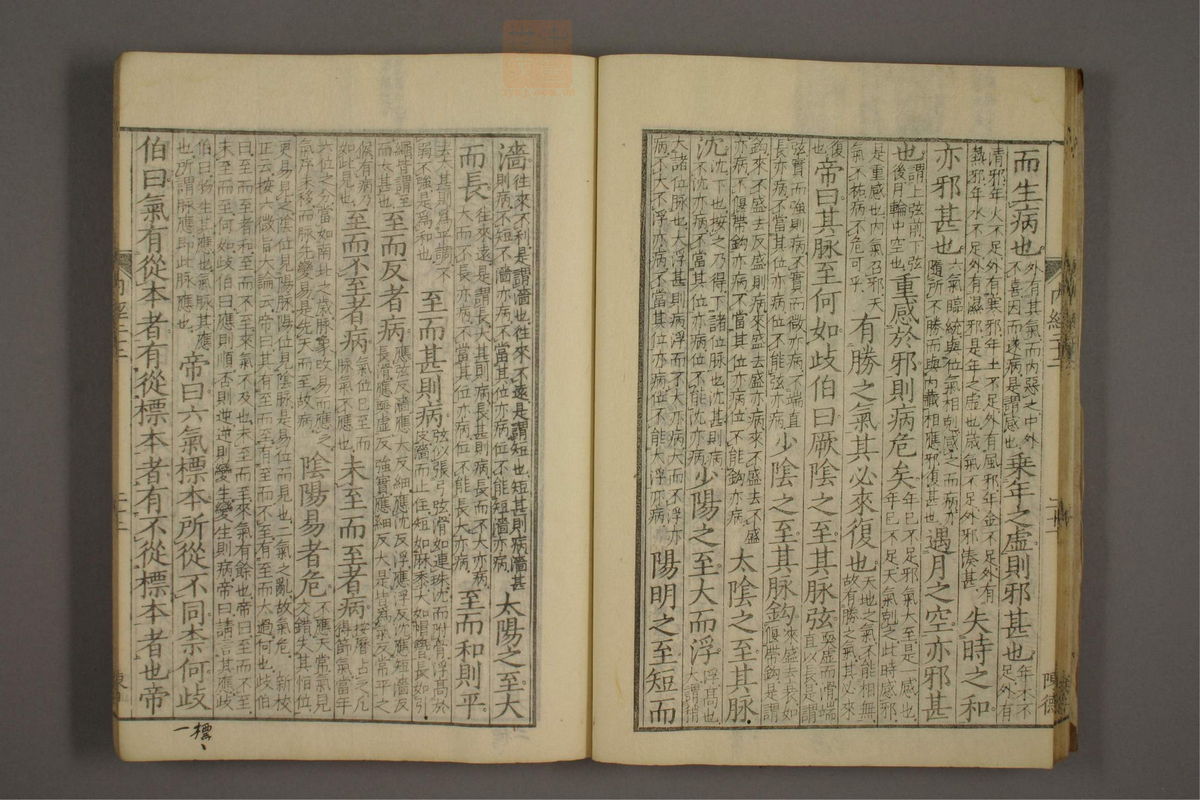 而生病也 外有其氣而內惡之中外不喜因而遂病是謂感也 乘年之虛則邪甚也 年木不足外有
清邪年火不足外有寒邪年土不足外有風邪年金不足外有熱邪年水不足外有濕邪是年之虛也歲氣不足外邪湊甚 失時之和
亦邪甚也 六氣臨統與位氣相剋感之而病亦隨所不勝而與內藏相應邪復甚也 遇月之空亦邪甚
也 謂上弦前下弦後月輪中空也 重感於邪則病危矣 年已不足邪氣大至是一感也年已不足天氣剋之此時感邪
是重感也內氣召邪天氣不祐病不危可乎 有勝之氣其必來復也 天地之氣不能相無故有勝之氣其必來
復也 帝曰其脉至何如歧伯曰厥陰之至其脉弦 耎虛而滑端直以長是謂
弦實而強則病不實而微亦病不端直長亦病不當其位亦病位不能弦亦病 少陰之至其脉鈎 來盛去衰如偃帶鈎是謂
鈎來不盛去反盛則病來盛去盛亦病來不盛去不盛亦病不偃帶鈎亦病不當其位亦病位不能鈎亦病 太陰之至其脉
沈 沈下也按之乃得下諸位脉也沈甚則病不沈亦病不當其位亦病位不能沈亦病 少陽之至大而浮 浮高也大謂稍
大諸位脉也大浮甚則病浮而不大亦病大而不浮亦病不大不浮亦病不當其位亦病位不能大浮亦病 陽明之至短而
濇 往來不利是謂濇也往來不遠是謂短也短甚則病濇甚則病不短不濇亦病不當其位亦病位不能短濇亦病 太陽之至大
而長 往來遠是謂長大甚則病長甚則病長而不大亦病大而不長亦病不當其位亦病位不能長大亦病 至而和則平
去太甚則為平調不弱不強是為和也 至而甚則病 弦似張弓弦滑如連珠沈而附骨浮高於皮濇而止住短如麻黍大如帽簪長如引
繩皆謂至而太甚也 至而反者病 應弦反濇應大反細應沈反浮應浮反沈應短濇反長滑應耎虛反強實應細反大是皆為氣反常平之
候有病乃如此見也 至而不至者病 氣位已至而脉氣不應也 未至而至者病 按曆占之凡得節氣當年
六位之分當如南北之歲脉象改易而應之氣序未移而脉先變易是先天而至故病 陰陽易者危 不應天常氣見交錯失其恒位
更易見之陰位見陽脉陽位見陰脉是易位而見也二氣之亂故氣危 新校正云按六微旨大論云帝曰其有至而至有至而不至有至而太過何也歧伯
曰至而至者和至而不至來氣不及也未至而至來氣有餘也帝曰至而不至未至而至何如歧伯曰應則順否則逆逆則變生變生則病帝曰請言其應歧
伯曰物生其應也氣脉其應也所謂脉應即此脉應也 帝曰六氣標本所從不同柰何歧
伯曰氣有從本者有從標本者有不從標本者也帝